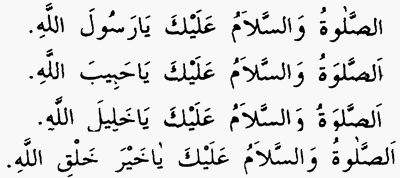 الصَّلٰوةُ وَالسَّلاَمُ عَلَيْكَ يَارَسُولَ اللَّهِ.
اَلصَّلَوَةُ وَالسَّلاَمُ عَلَيْكَ يَاحَبِيبَ اللَّهِ.
اَلصَّلَوَةُ وَالسَّلاَمُ عَلَيْكَ يَاخَلِيلَ اللَّهِ.
اَلصَّلٰوةُ وَالسَّلاَمُ عَلَيْكَ يٰاخَيْرَ خَلْقِ اللَّهِ.